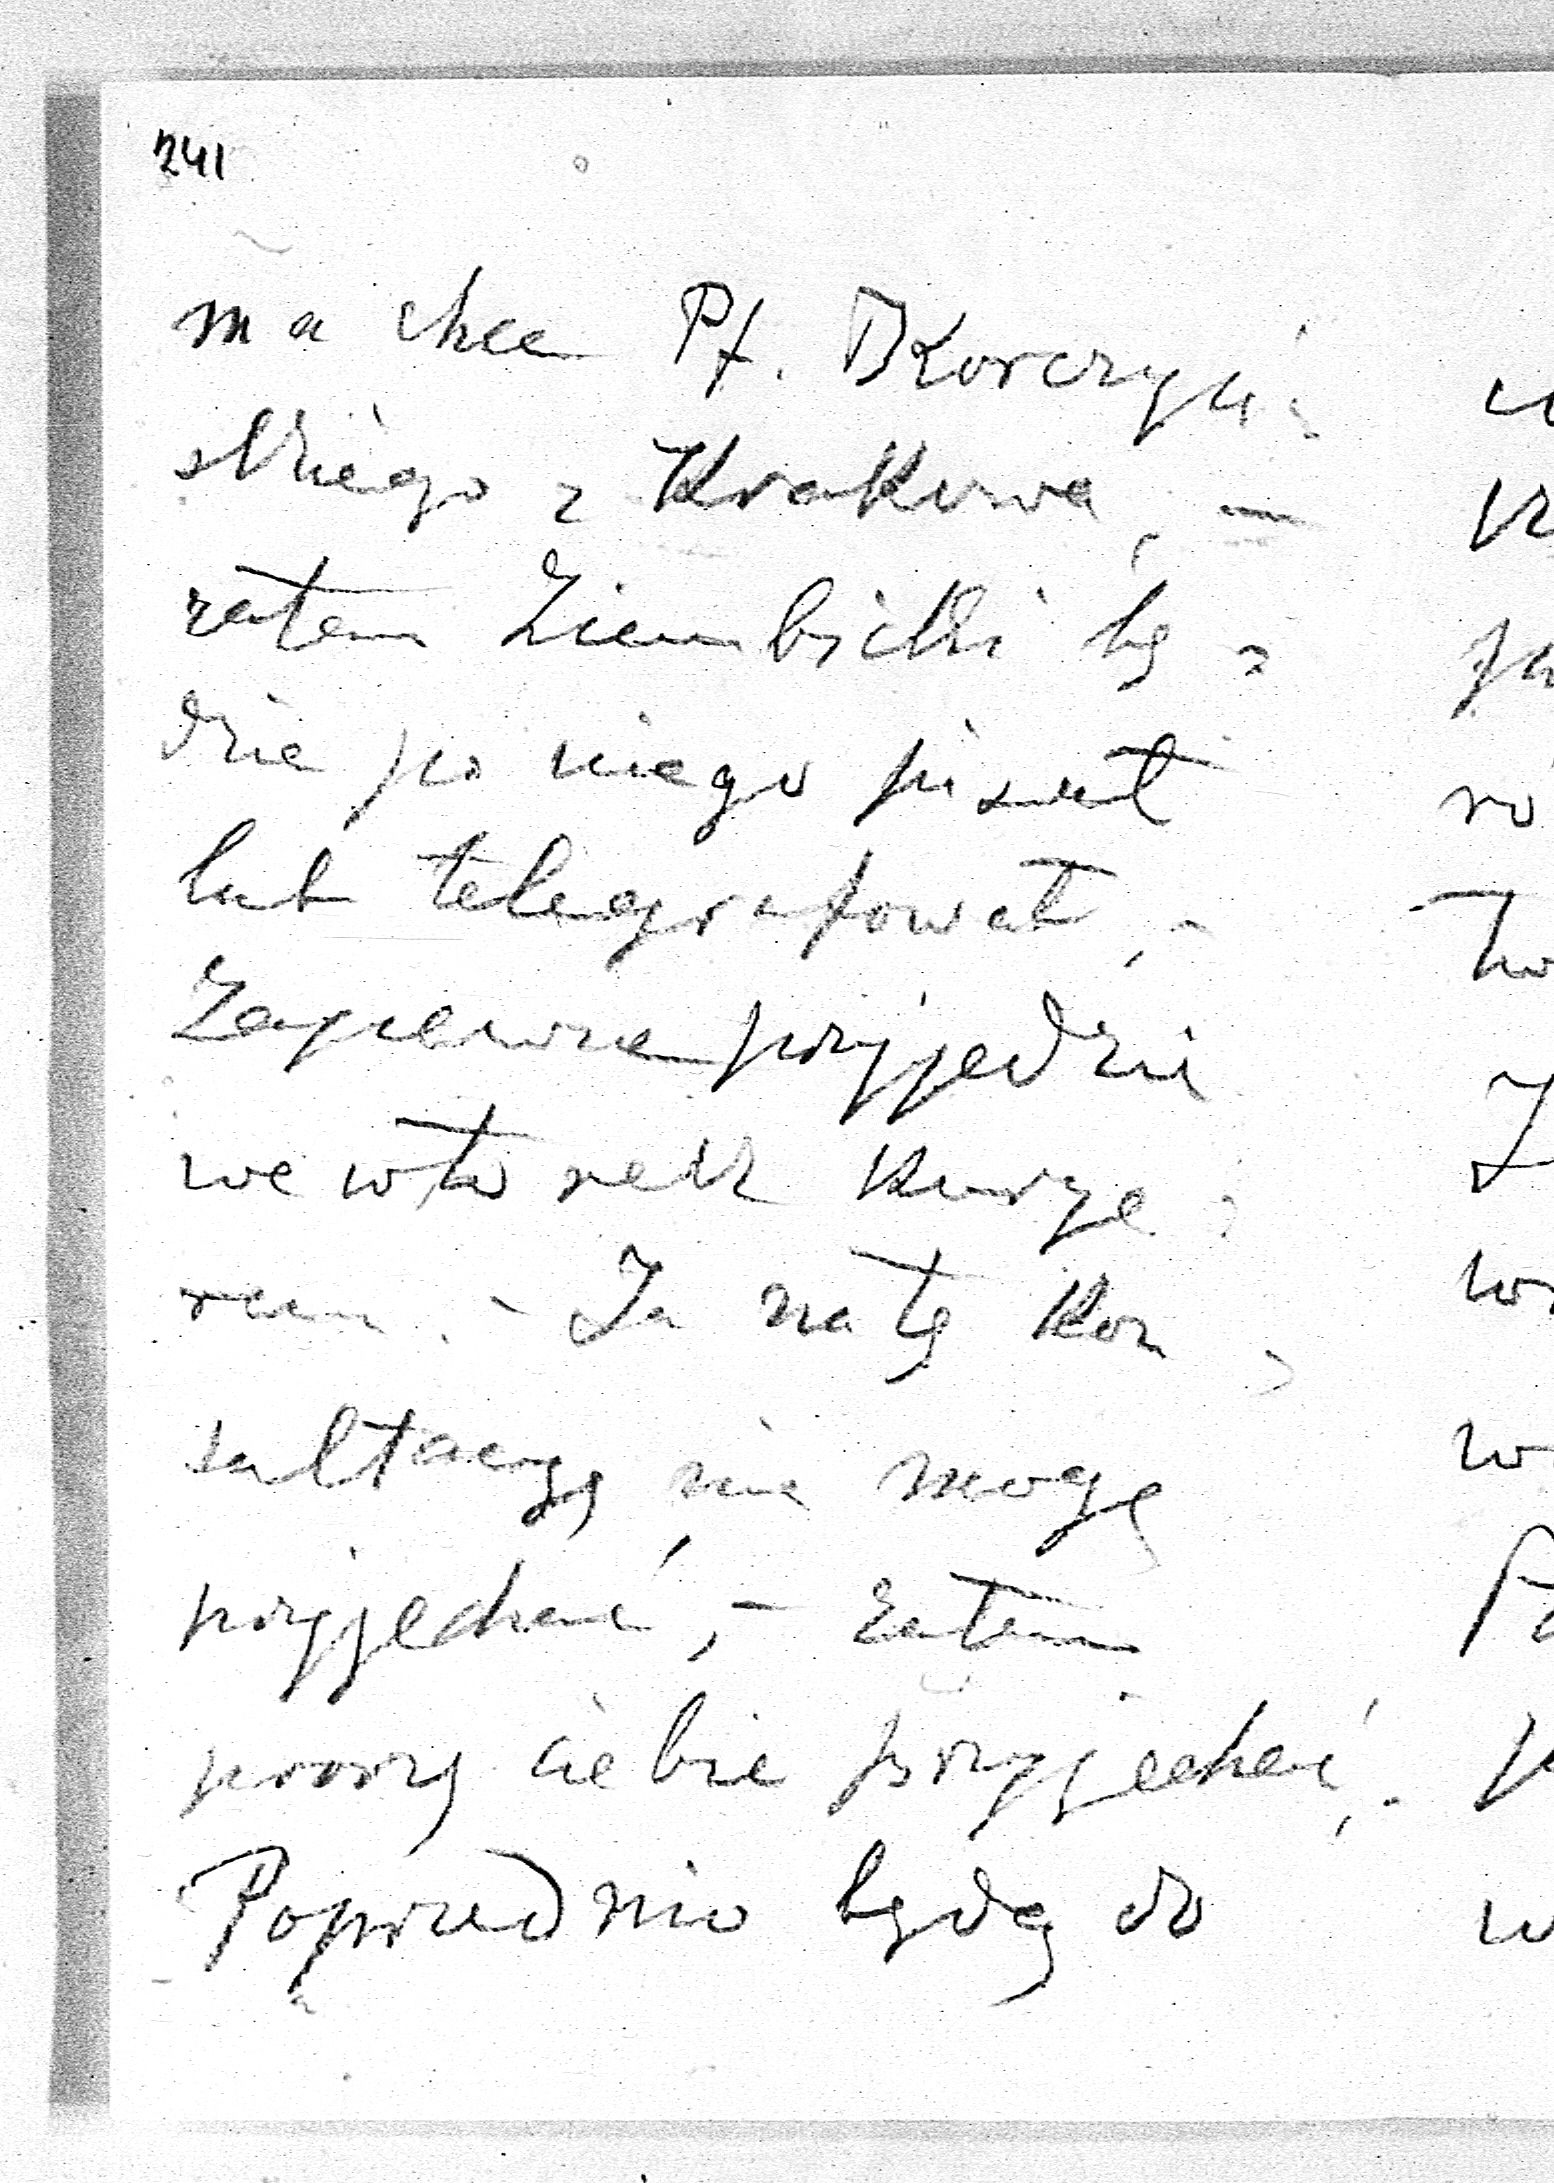 241
ma chce Pf. Korczyń:
skiego z Krakowa, —
zatem Ziembicki bę =
dzie po niego pisał
lub telegrafował, -
Zapewne przyjedzie
we wtorek Kurye :
rem. - Ja na tę kon =
sultacyę nie mogę
przyjechać, - zatem
proszę ciebie przyjechać, -
Poprzednio będę do